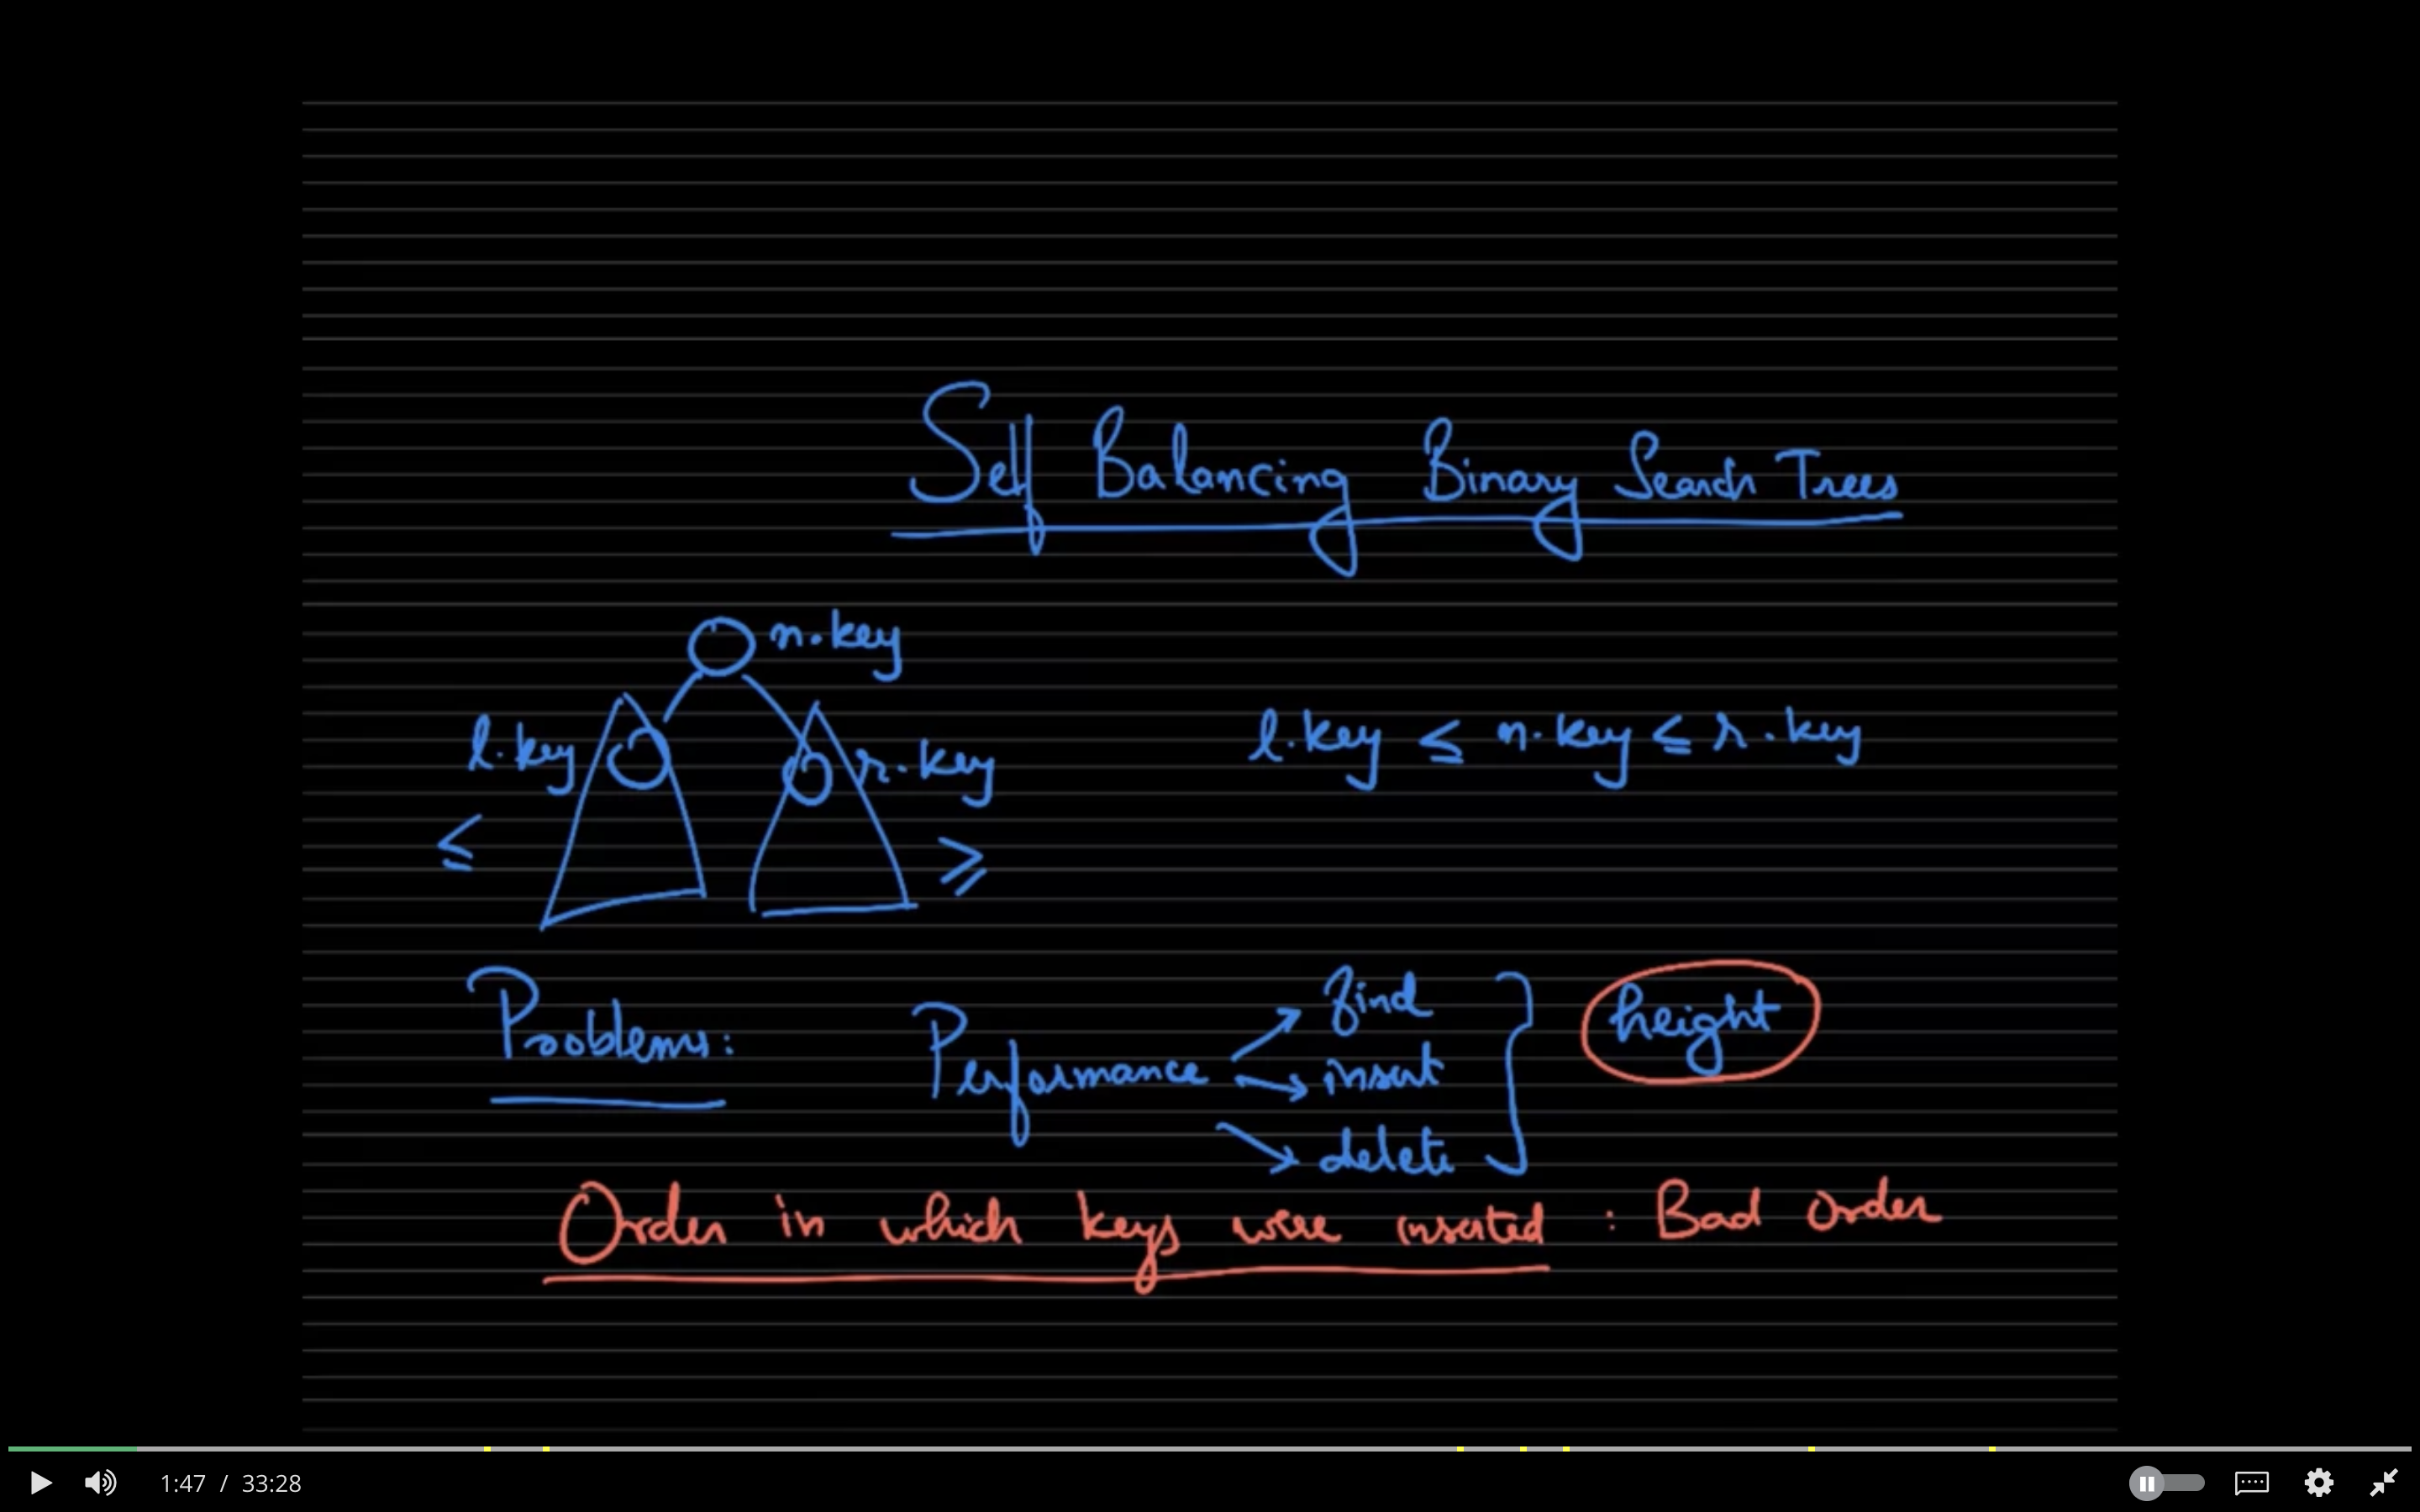 Self Balancing Binary Search Trees
n.key
l.key r.key l.key ≤ n.key ≤ r.key
≤ ≥
Problems: Performance find height
insert
delete
Order in which keys were inserted : Bad Order
1:47 / 33:28